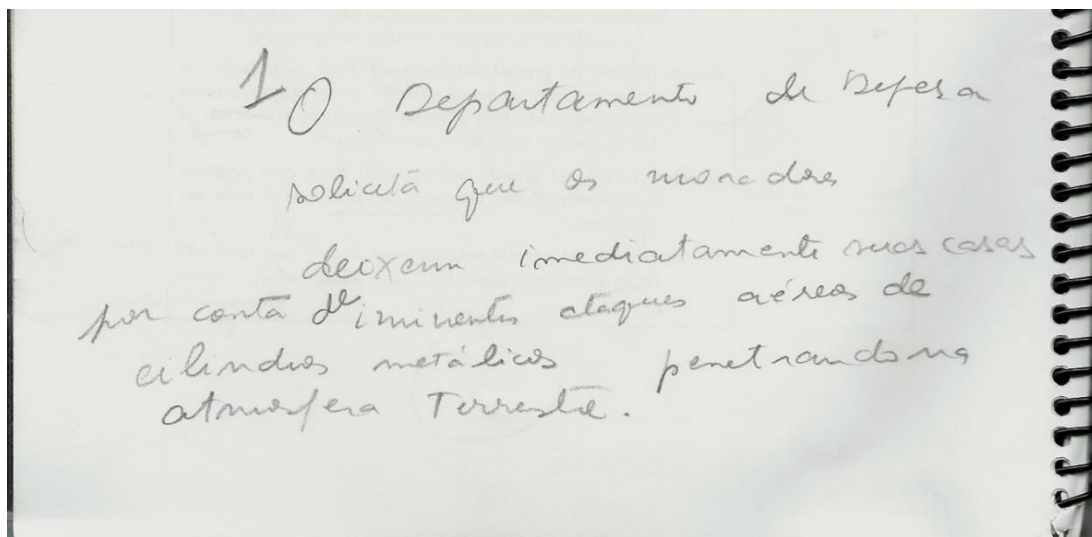 1 O Departamento de Defesa
solicita que os moradores
deixem imediatamente suas casas
por conta de iminentes ataques aéreos de
cilindros metálicos penetrando na
atmosfera Terrestre.